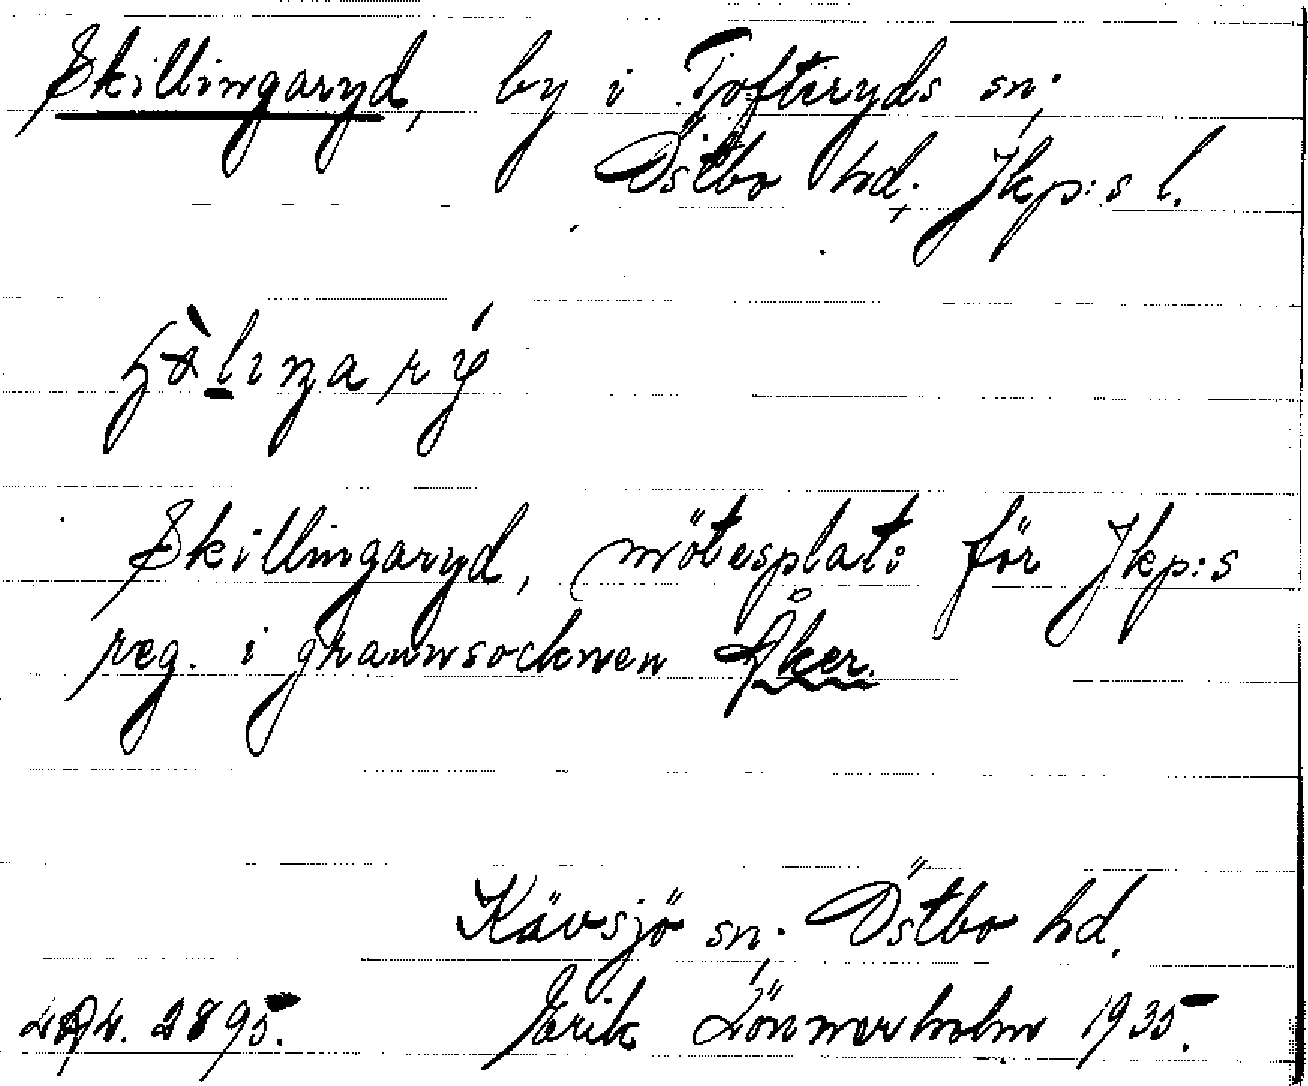 Skillingaryd, by i Tofteryds sn;
Östbo hd; Jkp:s l.
Skillingaryd, mötesplats för Jkp:s
reg. i grannsocknen Åker.
Kävsjö sn; Östbo hd.
2895. Erik Lönnerholm 1935.